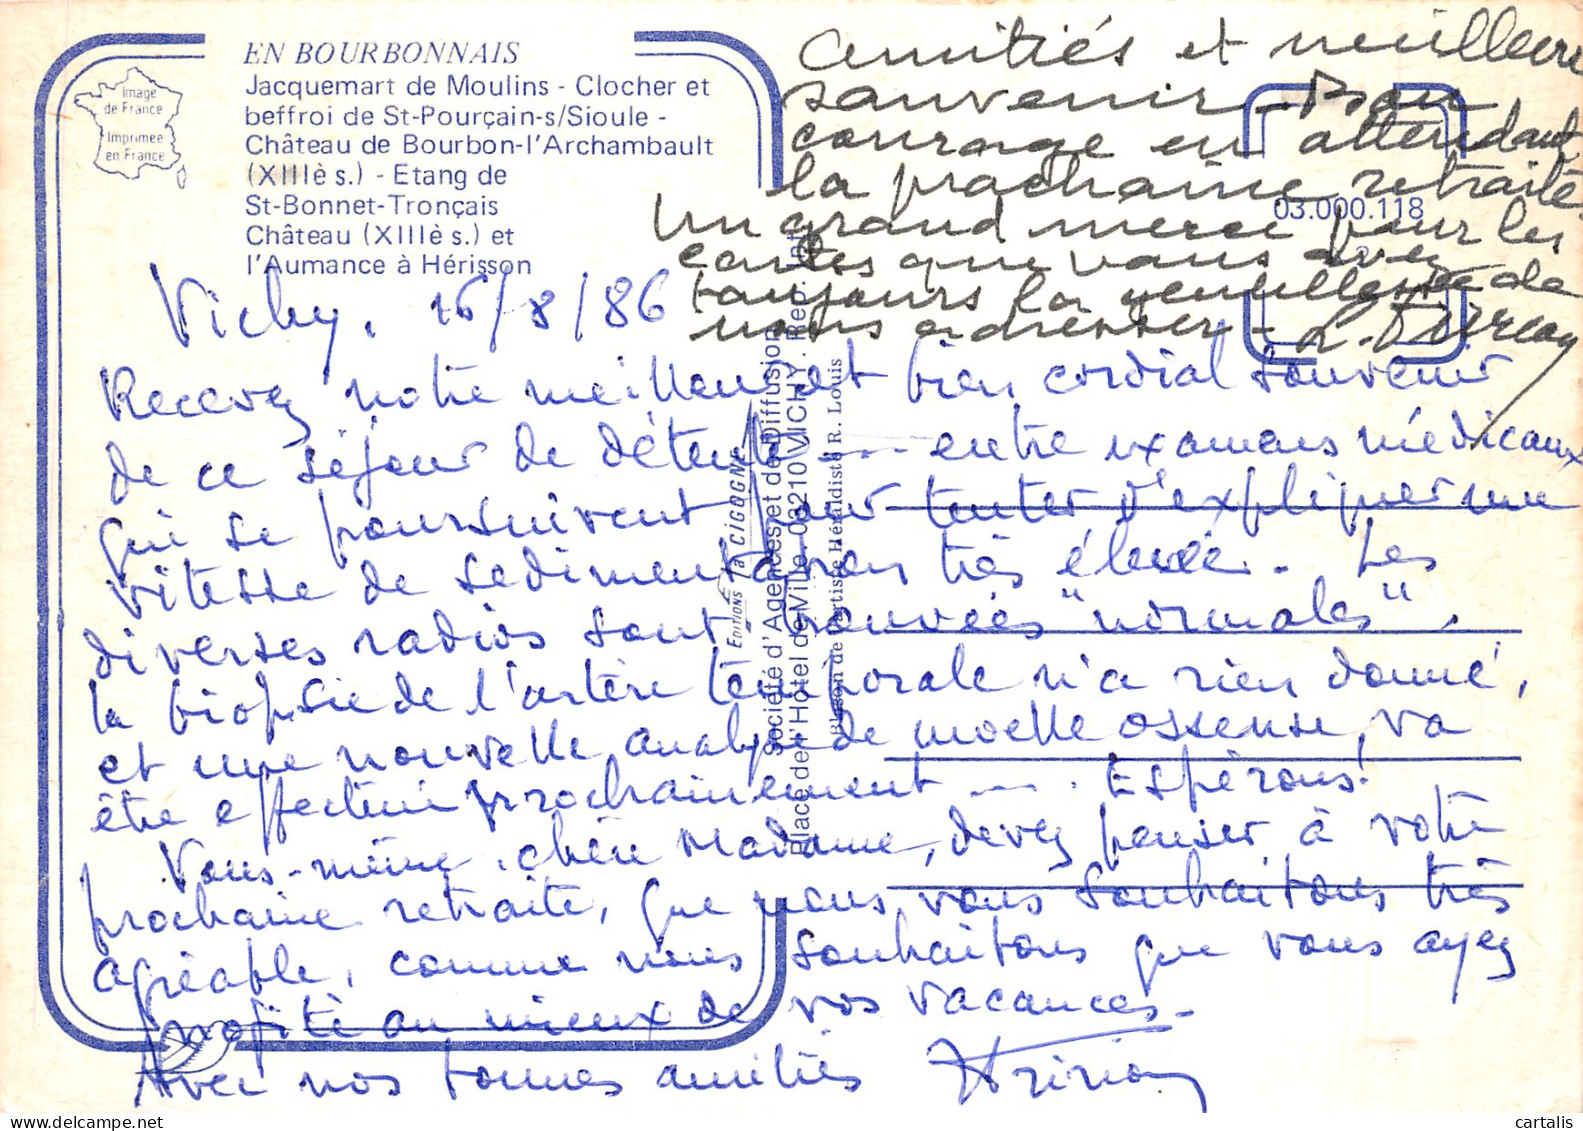 EN BOURBONNAIS
Jacquemart de Moulins - Clocher et
beffroi de St-Pourçain-s/Sioule -
Château de Bourbon-l'Archambault
(XIIIè s.) - Etang de
St-Bonnet-Tronçais
Château (XIIIè s.) et
l'Aumance à Hérisson
Image
de France
Imprimée
en France
Amitiés et meilleurs
souvenirs - Bon
courage en attendant
la prochaine retraite.
Un grand merci pour les
cartes que vous avez
toujours la gentillesse de
nous adresser -
03.000.118
Vichy, 16/8/86
Recevez notre meilleur et bien cordial souvenir
de ce séjour de détente ... entre examens médicaux
qui se poursuivent pour tenter d'expliquer une
vitesse de sédimentation très élevée. Les
diverses radios sont trouvées "normales".
la biopsie de l'artère temporale n'a rien donné,
et une nouvelle analyse de moelle osseuse va
être effectuée prochainement ... Espérons!
Vous-même, chère Madame, devez penser à votre
prochaine retraite, que nous vous souhaitons très
agréable, comme nous souhaitons que vous ayez
profité au mieux de vos vacances -
Avec nos bonnes amitiés
EDITIONS la CIGOGNE
Société d'Agences et de Diffusion
Place de l'Hôtel de Ville. 03210 VICHY. Rep. Int.
Blason de l'artiste Héraldiste R. Louis
cartalis